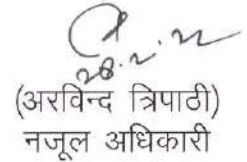 28.2.22
(अरविन्द त्रिपाठी)
नजूल अधिकारी